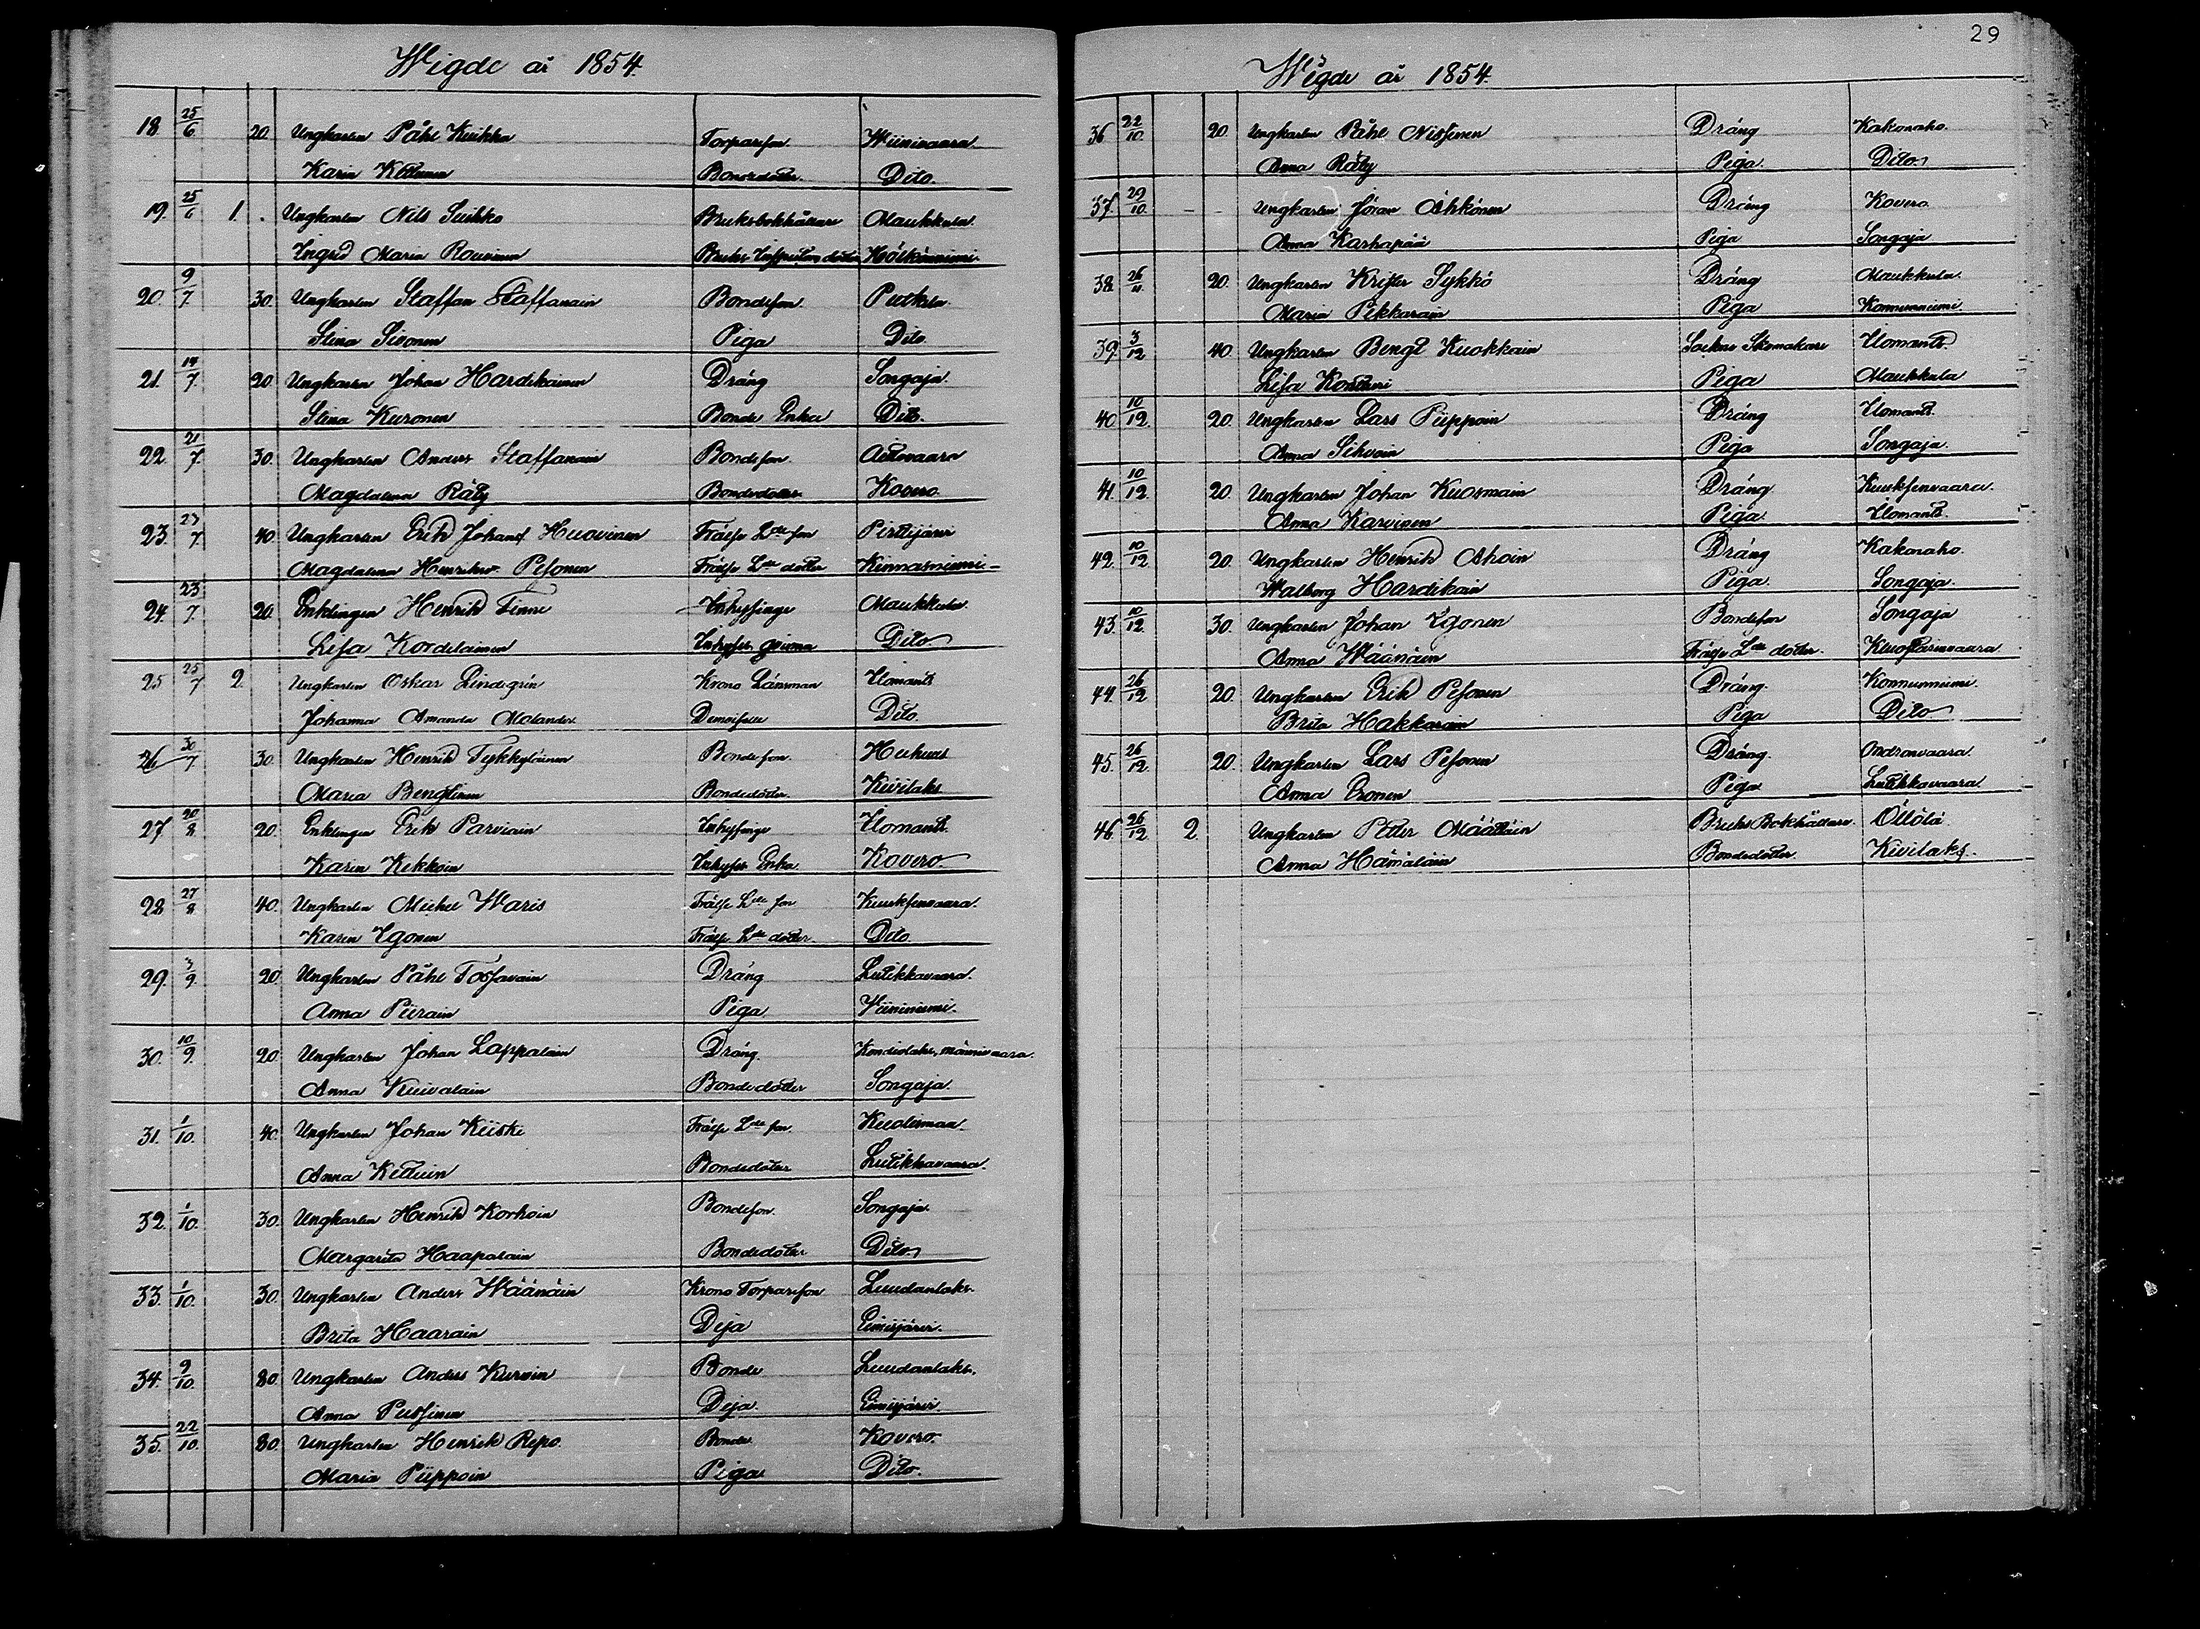 Wigde år 1854.
18. 25/6 20. Ungkarlen Påhl Kuikka Torpareson Wiinivaara
Karin Kettunen Bondedotter Dito.
19. 25/6 1. Ungkarlen Nils Suikko Bruksbokhållare Maukkula
Ingrid Maria Rouvinen Bruks Inspectors dotter
20. 9/7 30. Ungkarlen Staffan Staffanain Bondeson Putkela
Stina Sivonen Piga Dito
21. 14/7 20. Ungkarlen Johan Hardikainen Dräng Songaja
Stina Kuronen Bonde Enka Dito.
22. 21/7 30. Ungkarlen Anders Staffanain Bondeson
Magdalena Räty Bondedotter Kovero.
23. 23/7 40 Ungkarlen Erik Johans. Huovinen Frälse Lds son Pirttijärvi
Magdalena Henriksr Pesonen Frälse Lds dotter Kinnasniemi
24. 23/7 20. Enklingen Henrik Tinne Inhysinge Maukkula
Lisa Kordelainen Inhyses qvinna Dito
25 25/7 2. Ungkarlen Oskar Lindegrén Krono Länsman Ilomants
Johanna Amanda Molander Demoiselle Dito.
26 30/7 30. Ungkarlen Henrik Tykkyläinen Bondeson
Maria Bengtinen Bondedotter Kivilaks
27 20/8 20. Enklingen Erik Parviain Inhysinge Ilomants
Karin Kekkoin Inhyses Enka Kovero
28 27/8 40. Ungkarlen Michel Waris Frälse Lds son Kuuksenvaara
Karin Egonen Frälse Lds dotter Dito
29. 3/9. 20 Ungkarlen Påhl Tossavain Dräng Lutikkavaara
Anna Piirain Piga Wiininiemi
30. 10/9. 20 Ungkarlen Johan Lappalain Dräng Kondiolaks, männivaara
Anna Kuivalain Bondedotter Songaja
31. 1/10. 40. Ungkarlen Johan Kiiski Frälse Lds son Kuolismaa
Anna Kettuin Bondedotter Lutikkavaara
32. 1/10. 30. Ungkarlen Henrik Korhoin Bondeson Songaja
Margareta Haapalain Bondedotter Dito
33. 1/10. 30. Ungkarlen Anders Wäänäin Krono Torpareson Luudanlaks
Brita Haarain Deja Eimisjärvi
34. 9/10. 80. Ungkarlen Anders Kurvin Bonde Luudanlaks.
Anna Pussinen Deja Eimisjärvi
35. 22/10. 80. Ungkarlen Henrik Repo. Bonde Kovero
Maria Piippoin Piga Dito.
29
Wigde år 1854.
36 22/10 20. Ungkarlen Påhl Nissinen Dräng Kakonaho.
Anna Räty Piga Dito
37. 29/10. - - Ungkarlen Jöran Ahkönen Dräng Kovero
Anna Karhapää Piga Songaja
38. 26/11 20. Ungkarlen Krister Sykkö Dräng Maukkula
Maria Pekkarain Piga Konnunniemi
39. 3/12 40. Ungkarlen Bengt Kuokkain Sockne Skomakare Ilomants
Lisa Kontturi Piga Maukkula
40. 10/12. 20. Ungkarlen Lars Piippoin Dräng Ilomants
Anna Sihvoin Piga Songaja.
41. 10/12 20. Ungkarlen Johan Kuosmain Dräng Kuuksenvaara.
Anna Karvinen Piga Ilomants
42. 10/12 20. Ungkarlen Henrik Ahoin Dräng Kakonaho.
Walborg Hardikain Piga Songaja
43. 10/12. 30. Ungkarlen Johan Egonen Bondeson Songaja
Anna Wäänäin Frälse Lds dotter
44. 26/12 20. Ungkarlen Erik Pesonen Dräng. Konnunniemi
Brita Hakkarain Piga Dito
45. 26/12. 20. Ungkarlen Lars Pesonen Dräng. Ondronvaara
Anna Eronen Piga Lutikkavaara
46 26/12 2. Ungkarlen Petter Määttäin Bruks Bokhållare Öllölä
Anna Hämäläin Bondedotter Kivilaks.